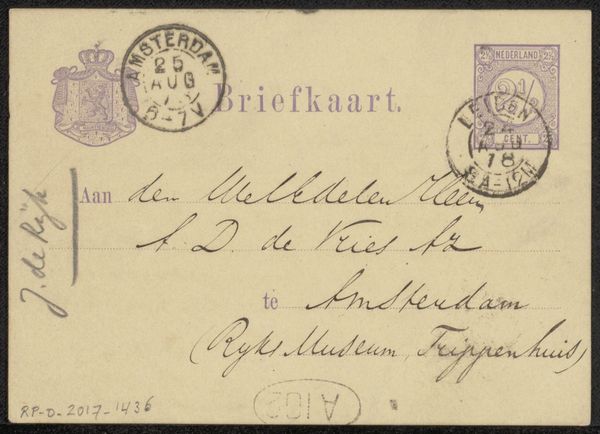 AMSTERDAM
25
AUG
6-7V
Briefkaart.
NEDERLAND
2½
CENT.
LEIDEN
24
AUG
78
8A-12M
Aan den WelEdelen Heer
A. D. de Vries Az
te Amsterdam
(Ryks Museum, Trippenhuis)
J. de Rijk
A102
RP-D-2017-1436